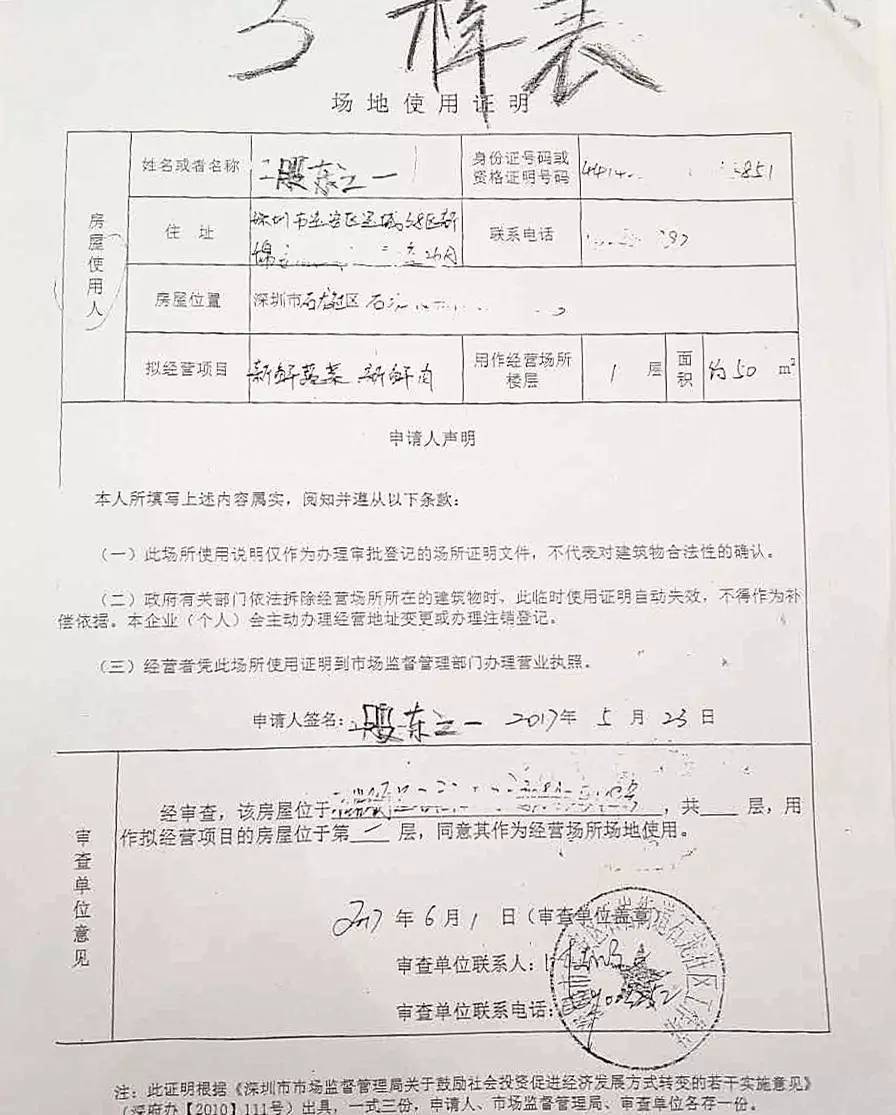 样表
场地使用证明
房屋使用人
姓名或者名称 股东之一 身份证号码或资格证明号码 4414 851
住 址 深圳市宝安区 68区新 联系电话 97
房屋位置 深圳市石岩区 石
拟经营项目 新鲜蔬菜 新鲜肉 用作经营场所楼层 1 层 面积 约50 m²
申请人声明
本人所填写上述内容属实，阅知并遵从以下条款：
（一）此场所使用说明仅作为办理审批登记的场所证明文件，不代表对建筑物合法性的确认。
（二）政府有关部门依法拆除经营场所所在的建筑物时，此临时使用证明自动失效，不得作为补
偿依据。本企业（个人）会主动办理经营地址变更或办理注销登记。
（三）经营者凭此场所使用证明到市场监督管理部门办理营业执照。
申请人签名：股东之一 2017年 5 月 23 日
审查单位意见
经审查，该房屋位于 ，共 层，用
作拟经营项目的房屋位于第 1 层，同意其作为经营场所场地使用。
2017 年 6 月 1 日（审查单位盖章）
审查单位联系人：
审查单位联系电话：
街道石龙社区工作站
注：此证明根据《深圳市市场监督管理局关于鼓励社会投资促进经济发展方式转变的若干实施意见》
（深府办【2010】111号）出具，一式三份，申请人、市场监督管理局、审查单位各存一份。